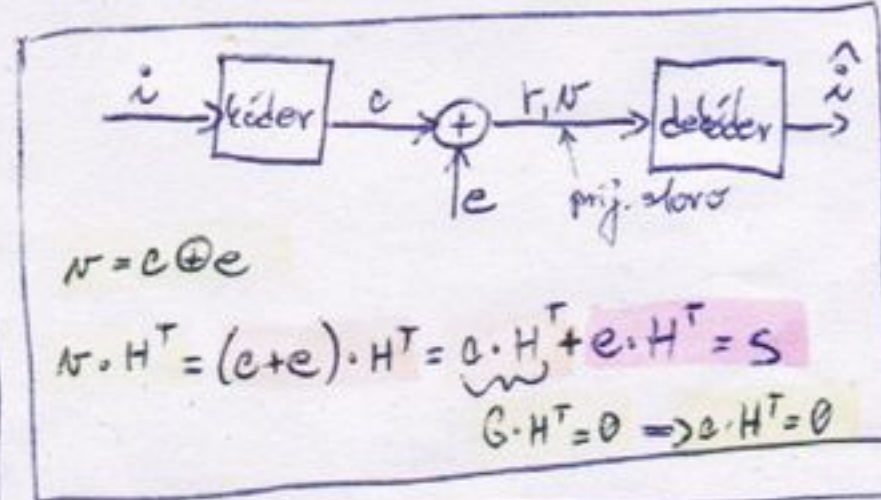 i kóder c + r, v dekóder î
e prij. slovo
v = c ⊕ e
v · Hᵀ = (c+e) · Hᵀ = c · Hᵀ + e · Hᵀ = s
G · Hᵀ = 0 => c · Hᵀ = 0